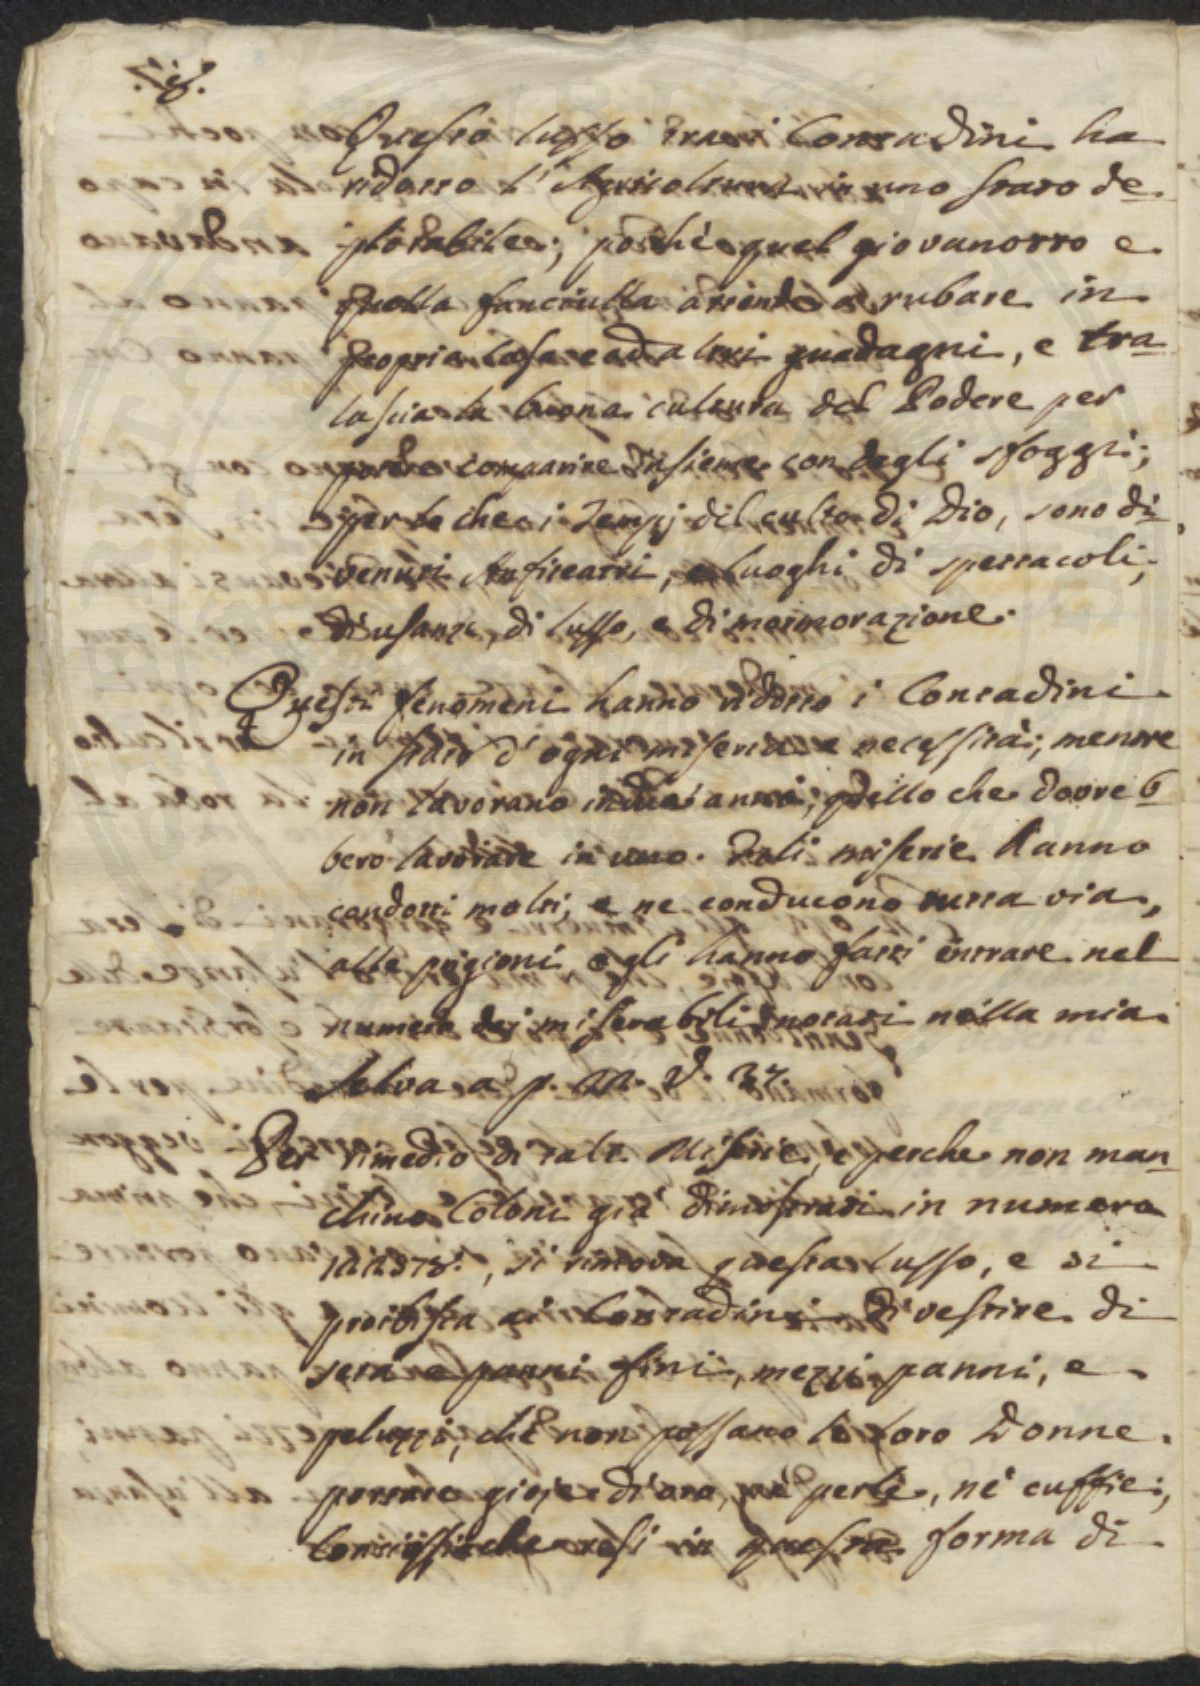 Questo lusso tra i Contadini ha
ridotto l'Agricoltura in uno stato de-
plorabile; poichè quel giovanotto e
quella fanciulla attende a rubare in
propria Casa e ad altri guadagni, e tra-
lascia la buona cultura del Podere per
poter comparire insieme con degli sfoggi;
per lo che i Tempj del culto di Dio, sono di-
venuti Anfiteatri, e luoghi di spettacoli,
di usanze, di lusso, e di mormorazione.
Questi fenomeni hanno ridotto i Contadini
in stato d'ogni miseria e necessità; mentre
non lavorano in due anni, quello che dovreb-
bero lavorare in uno. Tali miserie hanno
condotti molti, e ne conducono tutta via,
alle prigioni e gli hanno fatti entrare nel
numero dei miserabili notati nella mia
Selva a p. 22.
Per rimedio di tali Miserie, e perche non man-
chino Coloni già dimostrati in numero
, si rimova questo lusso, e si
proibisca ai Contadini di vestire di
seta e panni fini, mezzi panni, e
peluzzi, che non possano le loro Donne
portare gioje di oro, nè perle, nè cuffie;
che in questa forma di